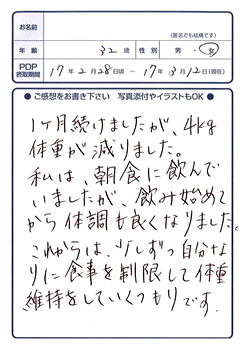 お名前
(匿名でも結構です)
年齢 32歳 性別 男・女
PDP摂取期間 17年2月28日頃 ～ 17年3月12日(現在)
● ご感想をお書き下さい 写真添付やイラストもOK ●
1ヶ月続けましたが、4kg
体重が減りました。
私は、朝食に飲んで
いましたが、飲み始めて
から体調も良くなりました。
これからは、少しずつ自分な
りに食事を制限して体重
維持をしていくつもりです。